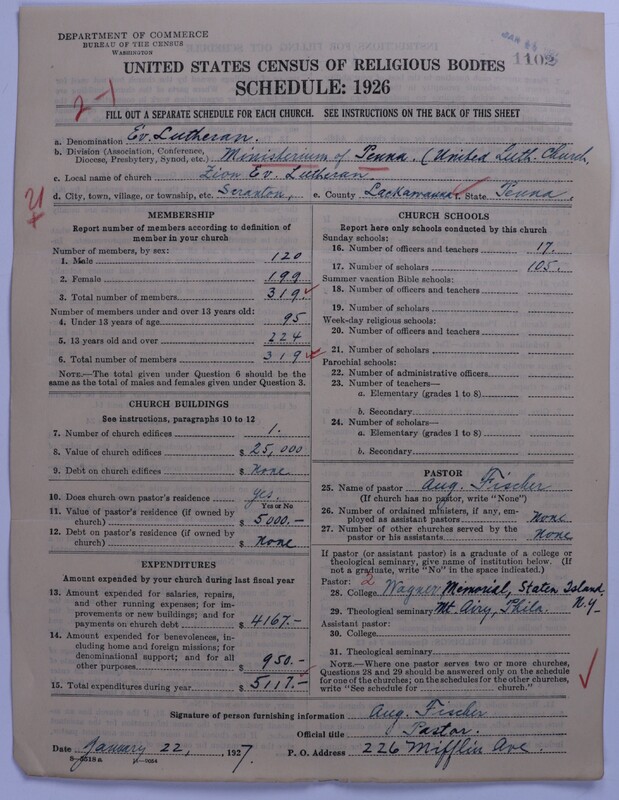 DEPARTMENT OF COMMERCE
BUREAU OF THE CENSUS
WASHINGTON
1102
UNITED STATES CENSUS OF RELIGIOUS BODIES
SCHEDULE: 1926
2-1
FILL OUT A SEPARATE SCHEDULE FOR EACH CHURCH. SEE INSTRUCTIONS ON THE BACK OF THIS SHEET
a. Denomination Ev. Lutheran.
b. Division (Association, Conference, Diocese, Presbytery, Synod, etc.) Ministerium of Penna. (United Luth. Church
c. Local name of church Zion Ev. Lutheran.
d. City, town, village, or township, etc. Scranton, e. County Lackawanna f. State Penna.
MEMBERSHIP
Report number of members according to definition of
member in your church
Number of members, by sex:
1. Male 120
2. Female 199
3. Total number of members 319.
Number of members under and over 13 years old:
4. Under 13 years of age 95
5. 13 years old and over 224
6. Total number of members 319
NOTE.—The total given under Question 6 should be
same as the total of males and females given under Question 3.
CHURCH BUILDINGS
See instructions, paragraphs 10 to 12
7. Number of church edifices 1.
8. Value of church edifices $ 25,000
9. Debt on church edifices $ None
10. Does church own pastor's residence yes.
Yes or No
11. Value of pastor's residence (if owned by
church) $ 5000.—
12. Debt on pastor's residence (if owned by
church) $ None
EXPENDITURES
Amount expended by your church during last fiscal year
13. Amount expended for salaries, repairs,
and other running expenses; for im-
provements or new buildings; and for
payments on church debt $ 4167.—
14. Amount expended for benevolences, in-
cluding home and foreign missions; for
denominational support; and for all
other purposes $ 950.—
15. Total expenditures during year $ 5117.—
CHURCH SCHOOLS
Report here only schools conducted by this church
Sunday schools:
16. Number of officers and teachers 17.
17. Number of scholars 105.
Summer vacation Bible schools:
18. Number of officers and teachers
19. Number of scholars
Week-day religious schools:
20. Number of officers and teachers
21. Number of scholars
Parochial schools:
22. Number of administrative officers
23. Number of teachers—
a. Elementary (grades 1 to 8)
b. Secondary
24. Number of scholars—
a. Elementary (grades 1 to 8)
b. Secondary
PASTOR
25. Name of pastor Aug. Fischer
(If church has no pastor, write "None")
26. Number of ordained ministers, if any, em-
ployed as assistant pastors None
27. Number of other churches served by the
pastor or his assistants None
If pastor (or assistant pastor) is a graduate of a college or
theological seminary, give name of institution below. (If
not a graduate, write "No" in the space indicated.)
Pastor: 2
28. College Wagner Memorial, Staten Island N.Y
29. Theological seminary Mt. Airy, Phila.
Assistant pastor:
30. College
31. Theological seminary
NOTE.—Where one pastor serves two or more churches,
Questions 28 and 29 should be answered only on the schedule
for one of the churches; on the schedules for the other churches,
write "See schedule for church."
Signature of person furnishing information Aug. Fischer
Official title Pastor.
Date January 22, 1927. P. O. Address 226 Mifflin Ave.